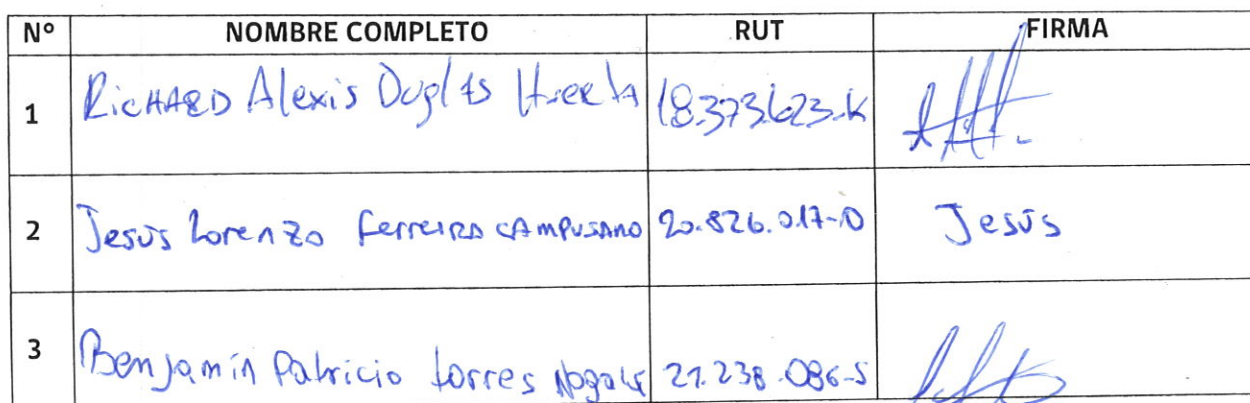 Nº NOMBRE COMPLETO RUT FIRMA
1 RicHARD Alexis Duglas Huerta 18.373.623-K
2 Jesús Lorenzo Ferreira CAMPUSANO 20.826.017-0 Jesús
3 Benjamín Patricio torres 21.238.086-5